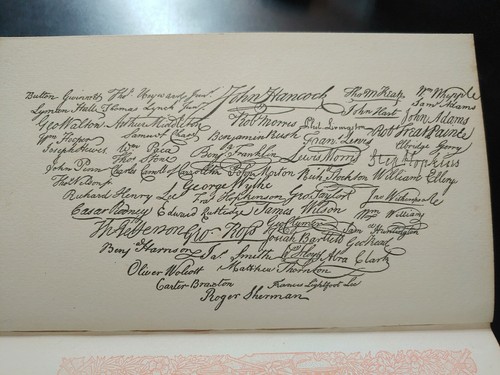 Button Gwinnett Tho^s Heyward Jun^r. John Hancock Tho M:Kean W^m Whipple
Lyman Hall Thomas Lynch Jun^r. John Hart Sam^l Adams
Geo Walton Arthur Middleton Rob^t Morris Phil. Livingston John Adams
W^m Hooper Samuel Chase Benjamin Rush Rob^t Treat Paine
Joseph Hewes W^m Paca Benj^a Franklin Lewis Morris Step. Hopkins Elbridge Gerry
John Penn Tho^s Stone Charles Carroll of Carrollton John Morton Rich^d Stockton William Ellery
Th^o Nelson jr. George Wythe
Richard Henry Lee Fra^s Hopkinson Geo. Taylor Jn^o Witherspoon
Caesar Rodney Edward Rutledge James Wilson W^m Williams
Th Jefferson Geo. Ross Geo Clymer Sam^l Huntington
Josiah Bartlett
Benj^a Harrison Ja^s Smith W^m Floyd Abra Clark
Oliver Wolcott Matthew Thornton
Carter Braxton Francis Lightfoot Lee
Roger Sherman